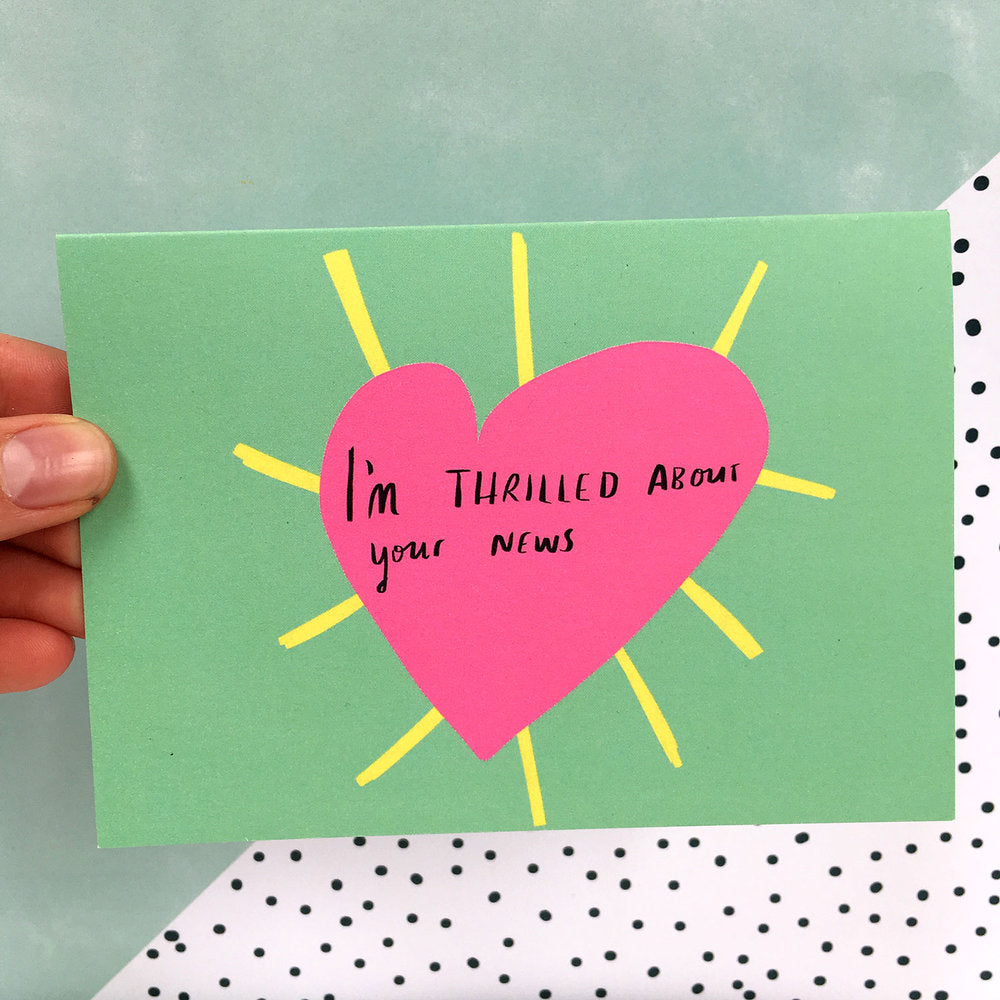 I'm THRILLED ABOUT
your NEWS